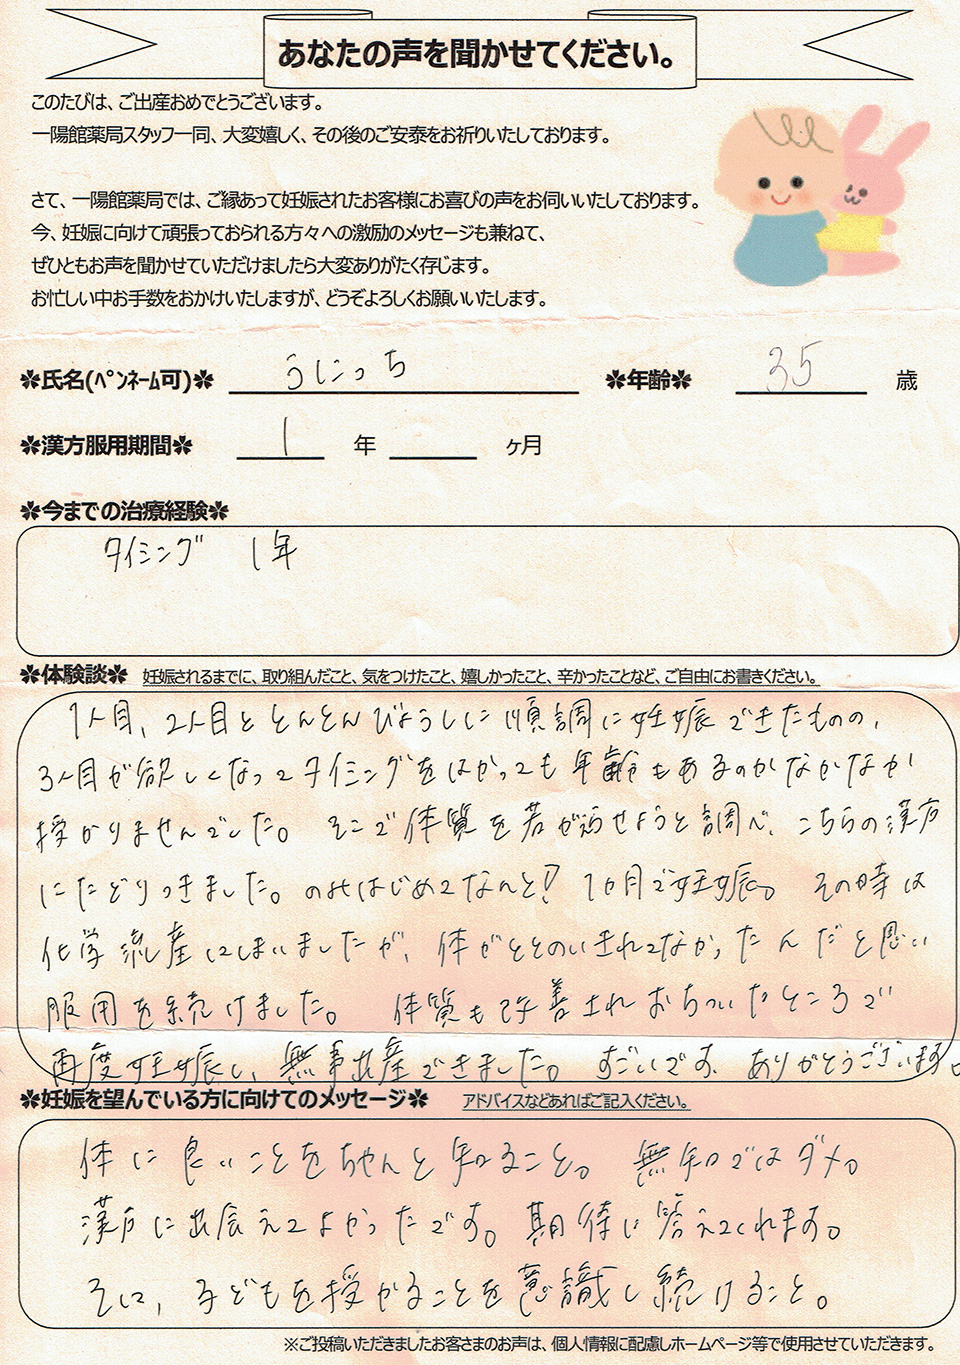 あなたの声を聞かせてください。
このたびは、ご出産おめでとうございます。
一陽館薬局スタッフ一同、大変嬉しく、その後のご安泰をお祈りいたしております。
さて、一陽館薬局では、ご縁あって妊娠されたお客様にお喜びの声をお伺いいたしております。
今、妊娠に向けて頑張っておられる方々への激励のメッセージも兼ねて、
ぜひともお声を聞かせていただけましたら大変ありがたく存じます。
お忙しい中お手数をおかけいたしますが、どうぞよろしくお願いいたします。
✽氏名(ペンネーム可)✽ うにっち ✽年齢✽ 35 歳
✽漢方服用期間✽ 1 年 ヶ月
✽今までの治療経験✽
タイミング 1年
✽体験談✽ 妊娠されるまでに、取り組んだこと、気をつけたこと、嬉しかったこと、辛かったことなど、ご自由にお書きください。
1人目、2人目ととんとんびょうしに順調に妊娠できたものの、
3人目が欲しくなってタイミングをはかっても年齢もあるのかなかなか
授かりませんでした。そこで体質を若がらせようと調べ、こちらの漢方
にたどりつきました。のみはじめてなんと! 1ヵ月で妊娠。その時は
化学流産してしまいましたが、体がととのいきれてなかったんだと思い
服用を続けました。体質も改善されおちついたところで
再度妊娠し、無事出産できました。すごいです。ありがとうございます。
✽妊娠を望んでいる方に向けてのメッセージ✽ アドバイスなどあればご記入ください。
体に良いことをちゃんと知ること。無知ではダメ。
漢方に出会えてよかったです。期待に答えてくれます。
そして、子どもを授かることを意識し続けること。
※ご投稿いただきましたお客さまのお声は、個人情報に配慮しホームページ等で使用させていただきます。